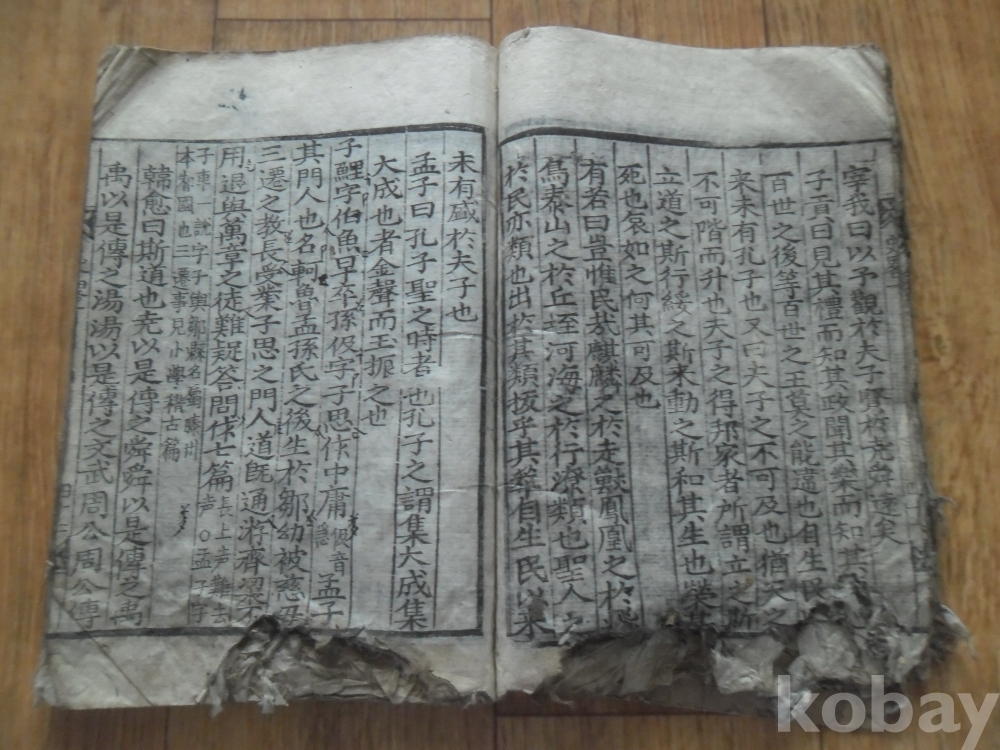 宰我曰以予觀於夫子賢於堯舜遠矣
子貢曰見其禮而知其政聞其樂而知其
百世之後等百世之王莫之能違也自生民
來未有孔子也又曰夫子之不可及也猶天之
不可階而升也夫子之得邦家者所謂立之斯
立道之斯行綏之斯來動之斯和其生也榮其
死也哀如之何其可及也
有若曰豈惟民哉麒麟之於走獸鳳凰之於
爲泰山之於丘垤河海之於行潦類也聖人之
於民亦類也出於其類拔乎其萃自生民以來
未有盛於夫子也
孟子曰孔子聖之時者也孔子之謂集大成集
大成也者金聲而玉振之也
子鯉字伯魚早卒孫伋字子思作中庸 伋音 孟子
其門人也名軻魯孟孫氏之後生於鄒幼被慈母
三遷之敎長受業子思之門人道旣通游齊梁不
用退與萬章之徒難疑答問作七篇 長上声難去声○孟子字
子車一說字子輿
本魯國也三遷事見小學稽古篇
韓愈曰斯道也堯以是傳之舜舜以是傳之禹
禹以是傳之湯湯以是傳之文武周公周公傳
kobay